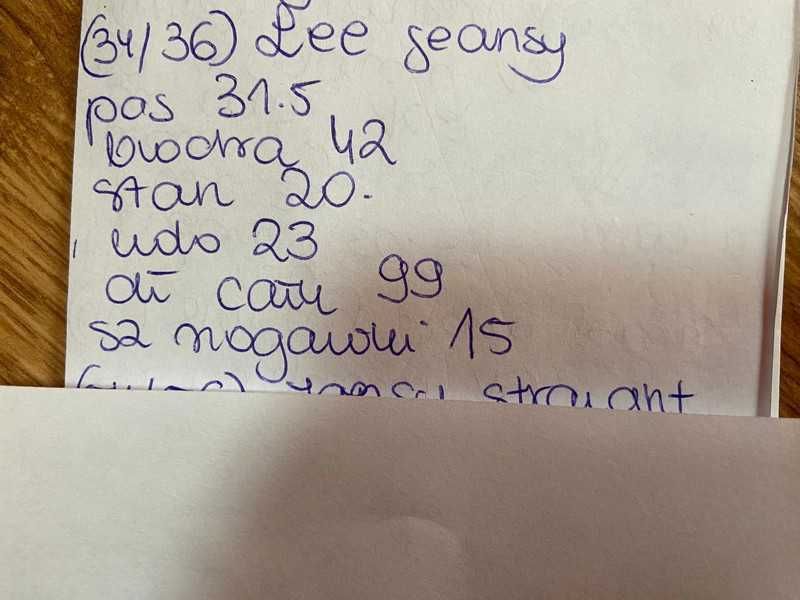 (34/36) Lee jeansy
pas 31.5
biodra 42
stan 20.
udo 23
dł cału 99
sz nogawki 15
straight